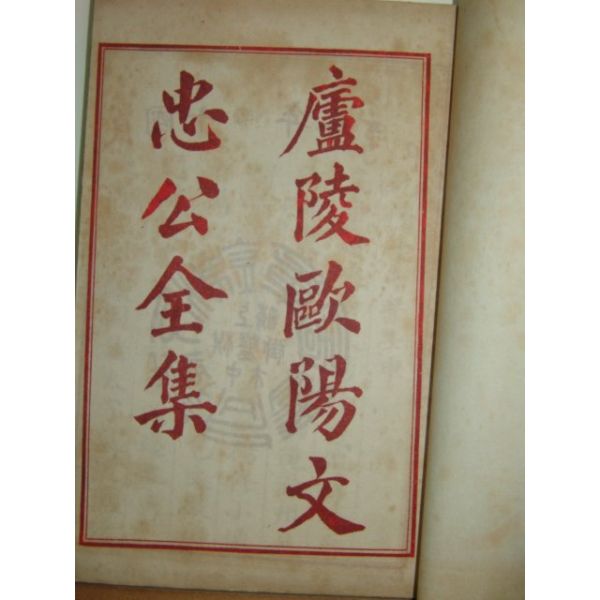 廬陵歐陽文
忠公全集